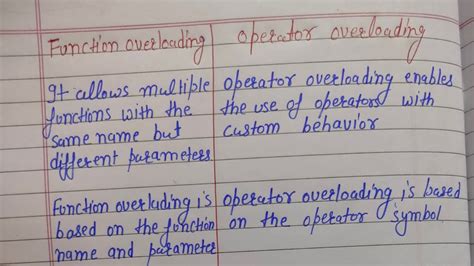 Function overloading
operator overloading
It allows multiple
functions with the
same name but
different parameters
operator overloading enables
the use of operators with
custom behavior
Function overluding is
based on the function
name and parameter
operator overloading is based
on the operator symbol